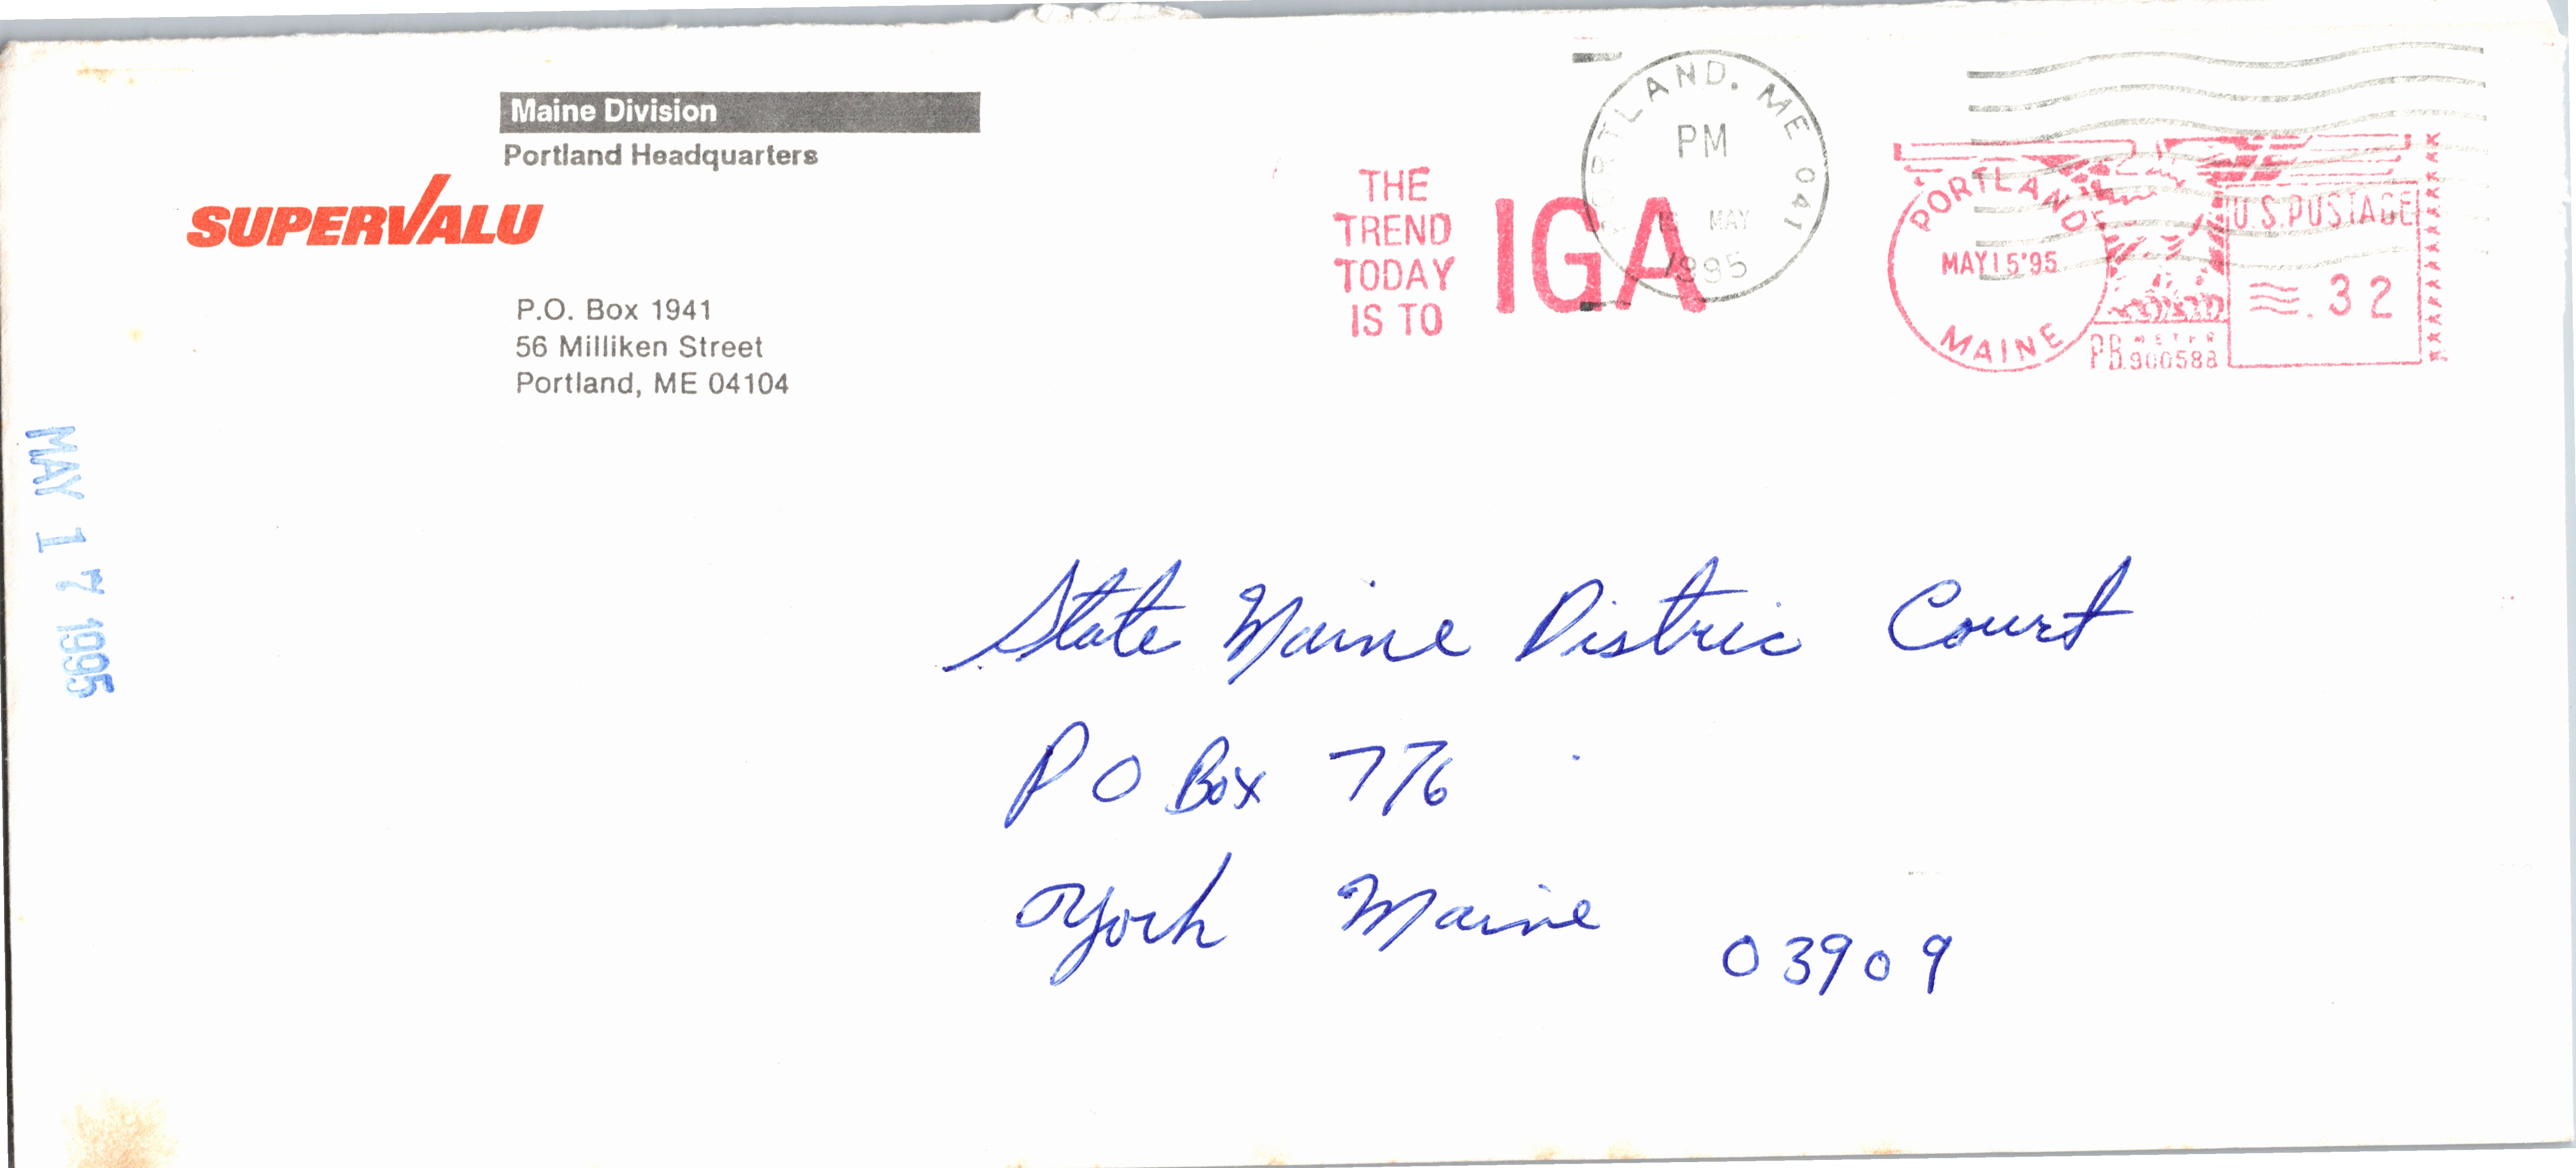 Maine Division
Portland Headquarters
SUPERVALU
P.O. Box 1941
56 Milliken Street
Portland, ME 04104
THE
TREND
TODAY
IS TO
IGA
PORTLAND. ME 041
PM
MAY
1995
PORTLAND
MAY15'95
MAINE
U.S.POSTAGE
.32
PB METER
900588
MAY 17 1995
State Maine Distric Court
P O Box 776
York Maine 03909